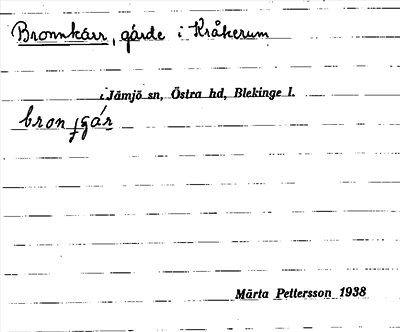 Bromkärr, gärde i Kråkerum
i Jämjö sn, Östra hd, Blekinge l.
Märta Pettersson 1938